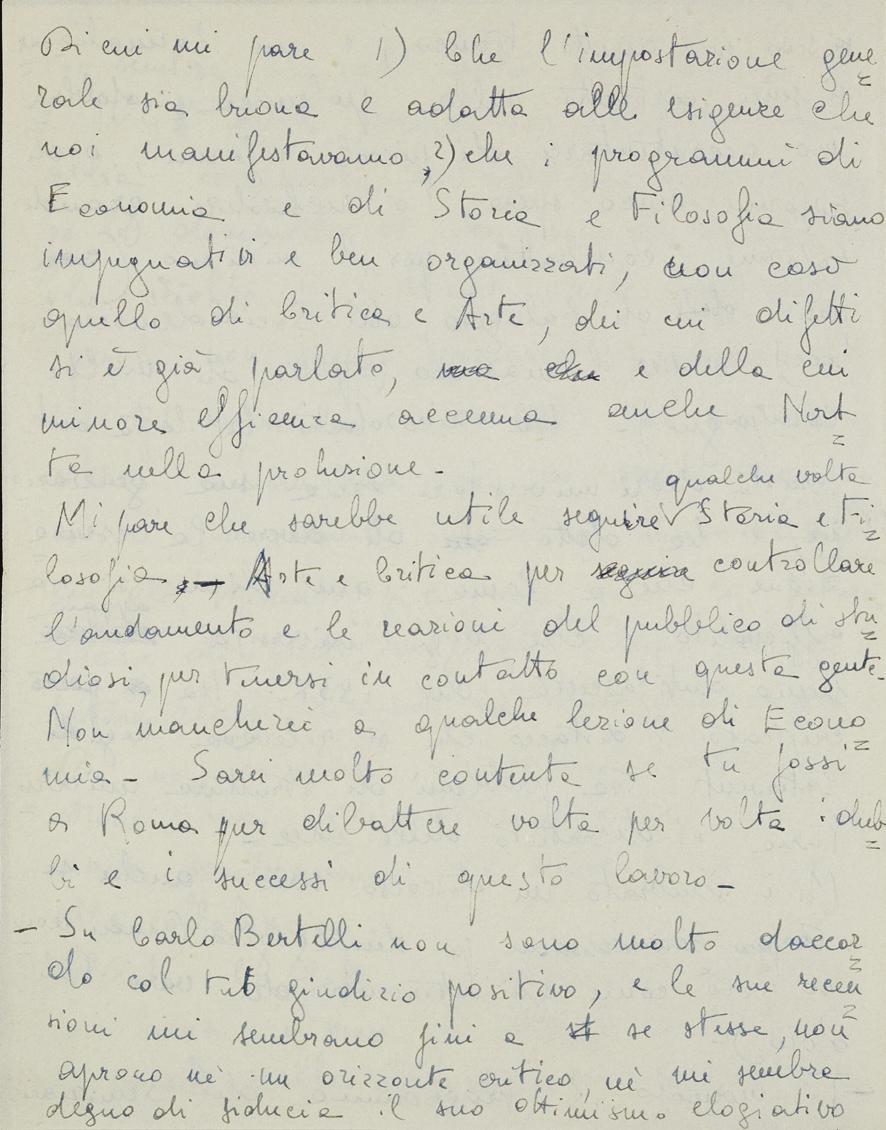 Di cui mi pare 1) Che l'impostazione gene=
rale sia buona e adatta alle esigenze che
noi manifestavamo, 2) che i programmi di
Economia e di Storia e Filosofia siano
impegnativi e ben organizzati, non così
quello di Critica e Arte, dei cui difetti
si è già parlato, ma che e della cui
minore efficienza accenna anche Nort=
te nella prolusione -
qualche volta
Mi pare che sarebbe utile seguire V Storia e Fi=
losofia, - Arte e Critica per seguire controllare
l'andamento e le reazioni del pubblico di stu=
diosi, per tenersi in contatto con questa gente.
Non mancherei a qualche lezione di Econo=
mia - Sarei molto contenta se tu fossi
a Roma per dibattere volta per volta i dub=
bi e i successi di questo lavoro -
- Su Carlo Bertelli non sono molto daccor=
do col tuo giudizio positivo, e le sue recen=
sioni mi sembrano fini a st se stesse, non
aprono nè un orizzonte critico, nè mi sembra
degno di fiducia il suo ottimismo elogiativo